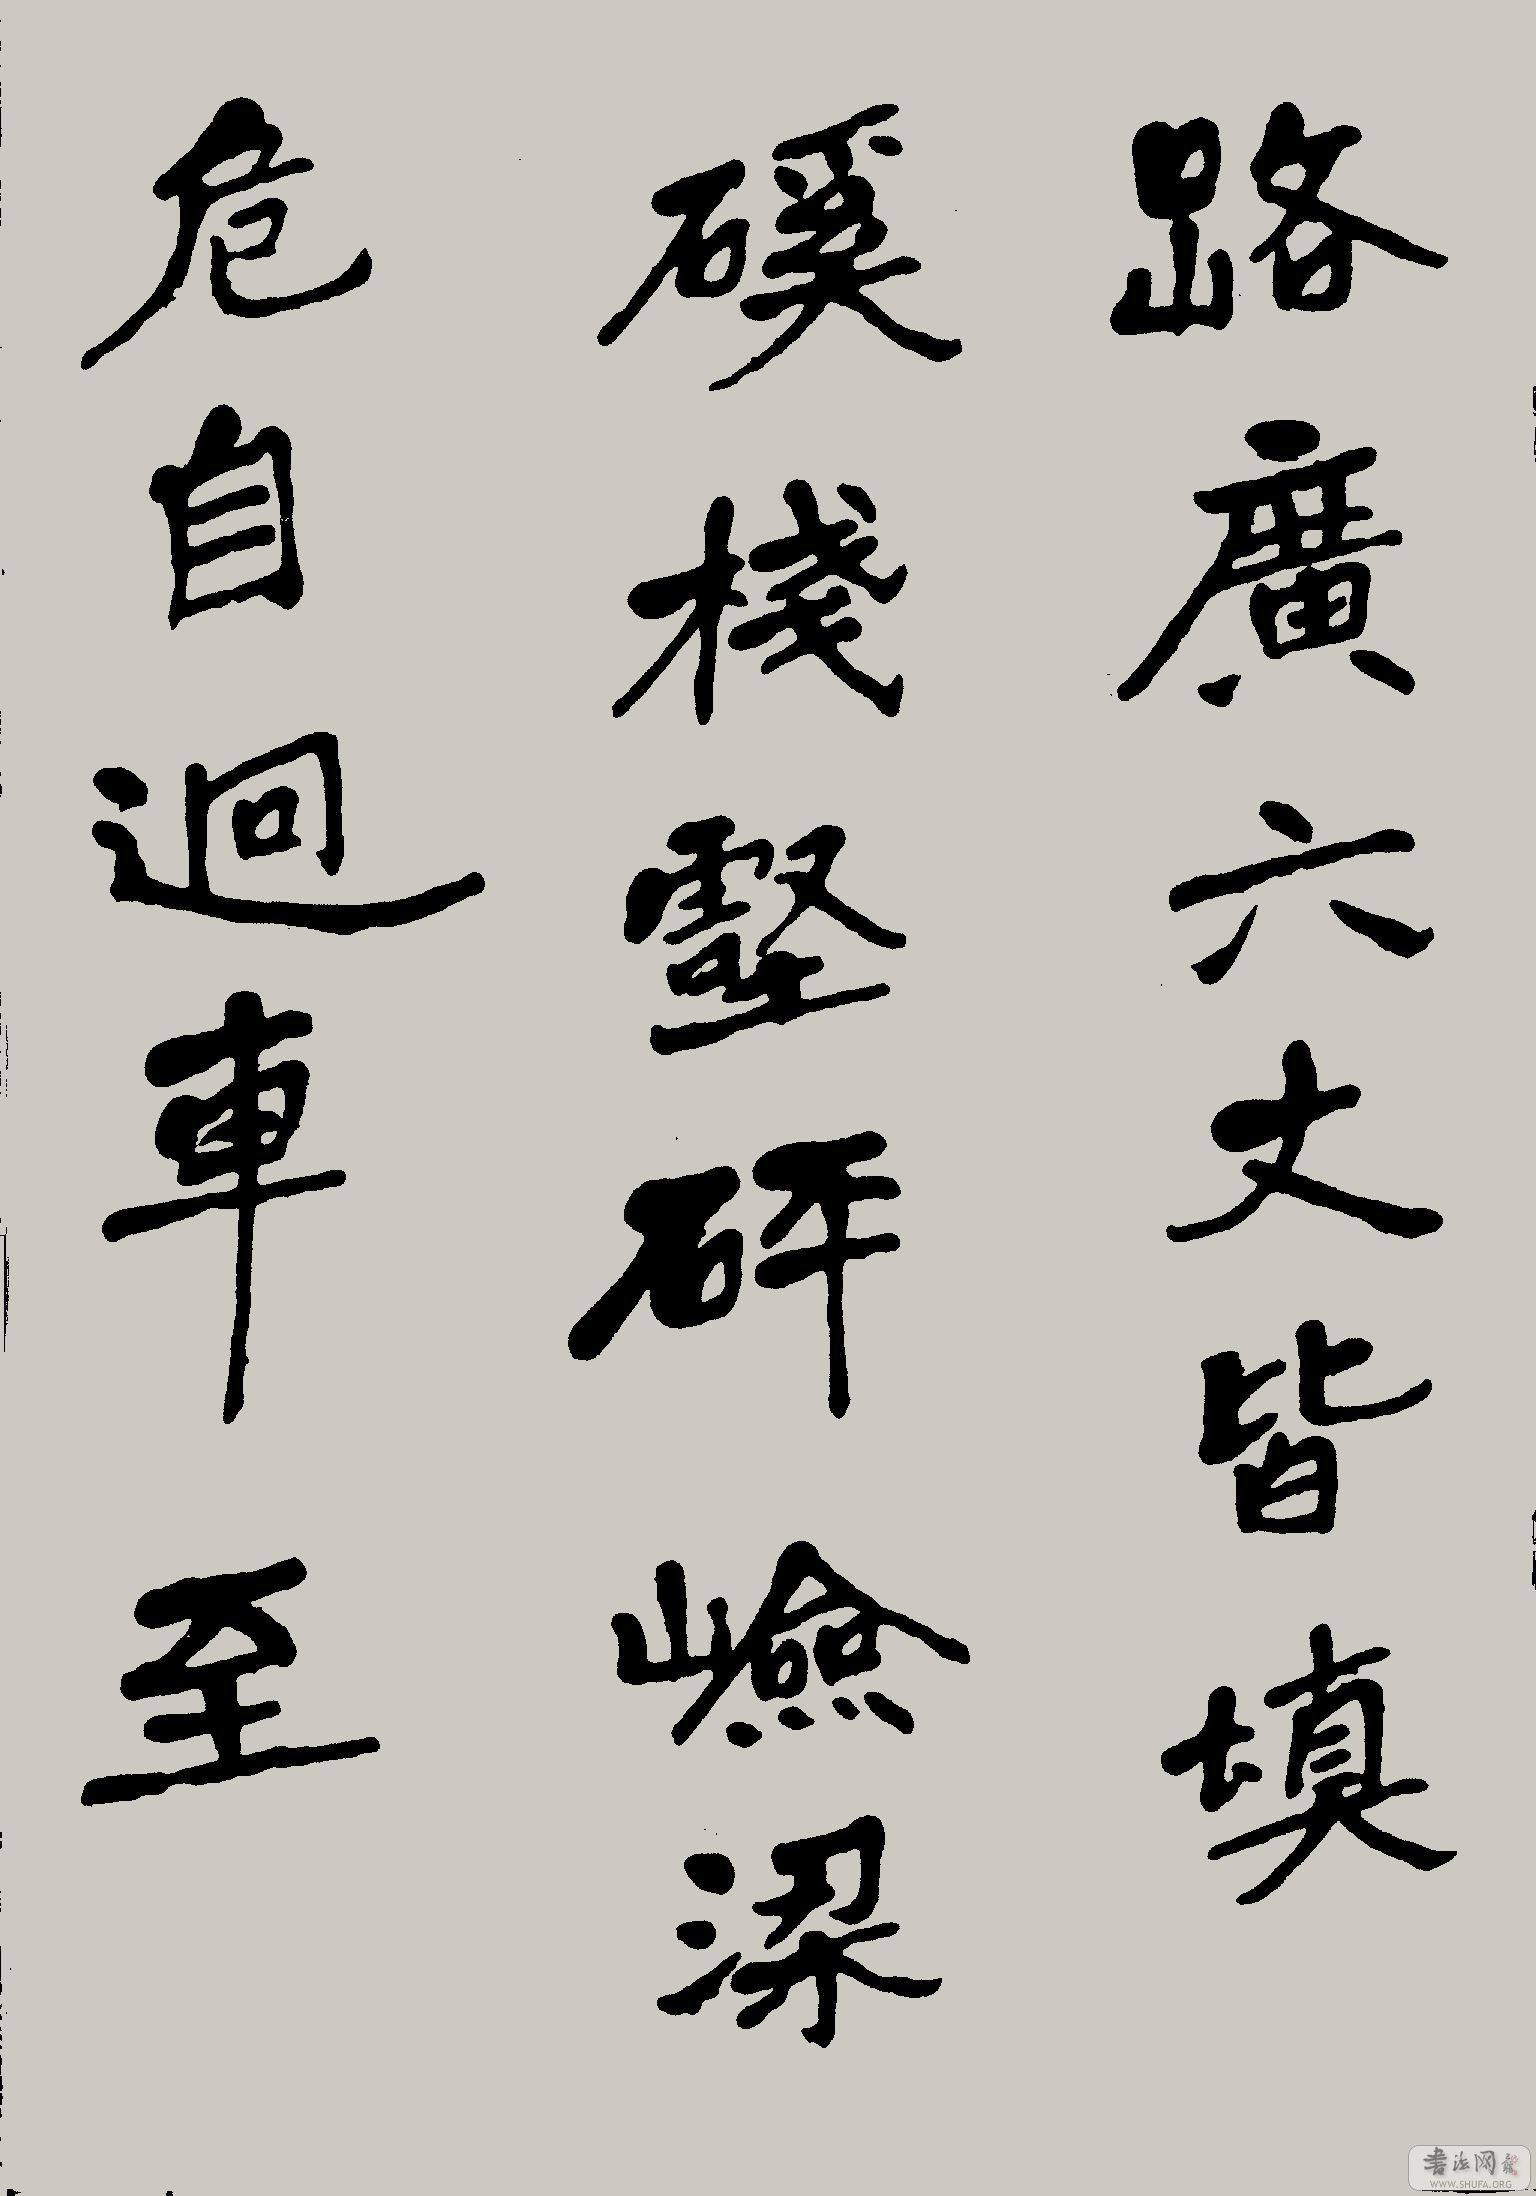 路廣六丈皆填
磎棧壑砰嶮梁
危自迴車至
书法网
WWW.SHUFA.ORG